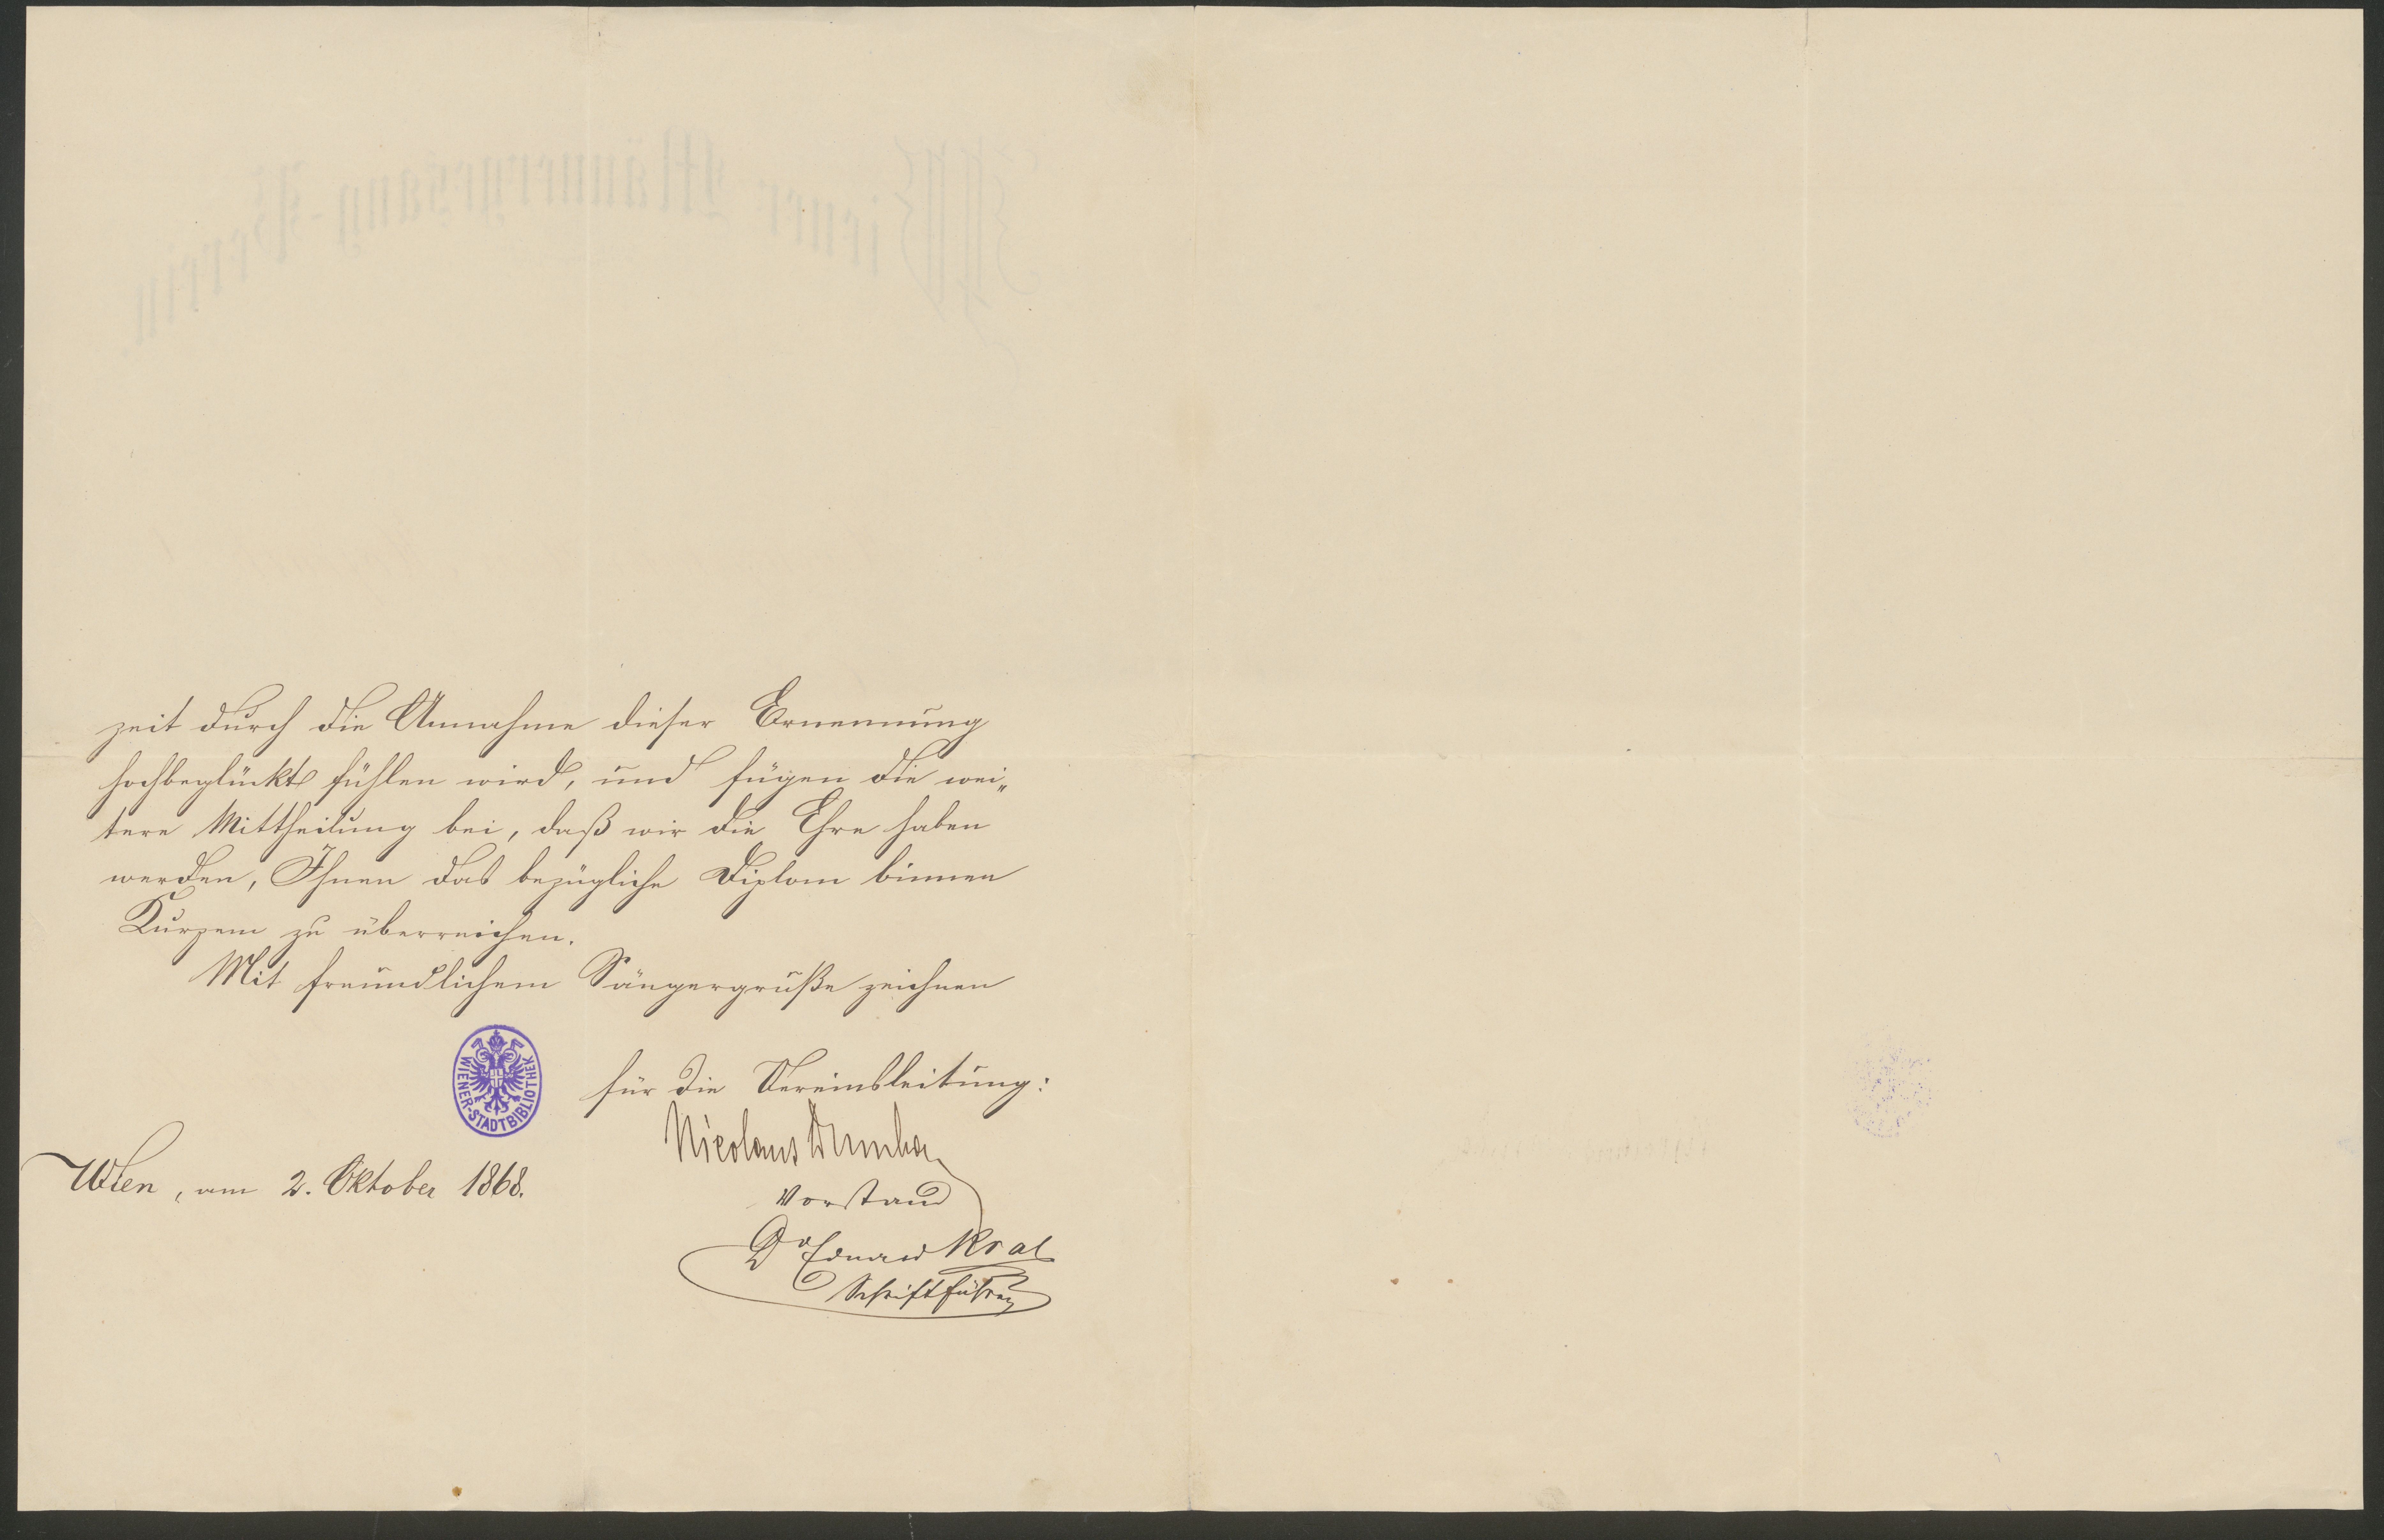 zeit durch die Annahme dieser Ernennung
hochbeglückt fühlen wird, und fügen die wei„
tere Mittheilung bei, daß wir die Ehre haben
werden, Ihnen das bezügliche Diplom binnen
Kurzem zu überreichen.
Mit freundlichem Sängergruße zeichnen
für die Vereinsleitung:
Nicolaus Dumba
Vorstand
Dr Eduard Kral
Schriftführer
Wien, am 2. Oktober 1868.
WIENER-STADTBIBLIOTHEK
Wiener Männergesang-Verein